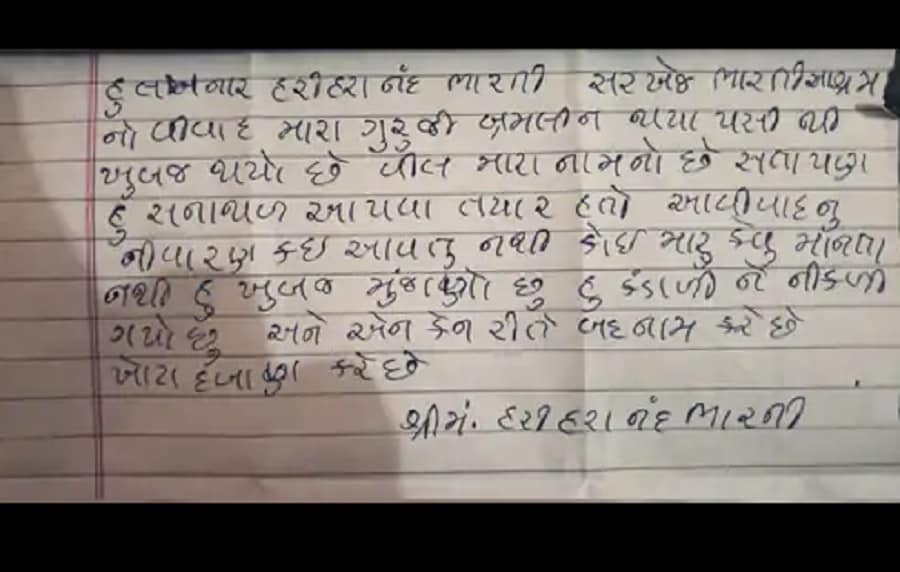 હુ લખનાર હરીહરાનંદ ભારતી સરખેજ ભારતીઆશ્રમ
નો વીવાદ મારા ગુરુજી બ્રમલીન થયા પસી થી
ખુબજ થયો છે વીલ મારા નામનો છે સતા પણ
હુ સમાધાન આપવા તયાર હતો આવીવાદનુ
નીવારણ કઇ આવતુ નથી કોઇ મારુ કેવુ માનતા
નથી હુ ખુબજ મુંજાણો છુ હુ કંટાળી ને નીકળી
ગયો છુ અને એન કેન રીતે બદનામ કરે છે
ખોટા દબાણ કરે છે
શ્રીમં. હરીહરાનંદ ભારતી